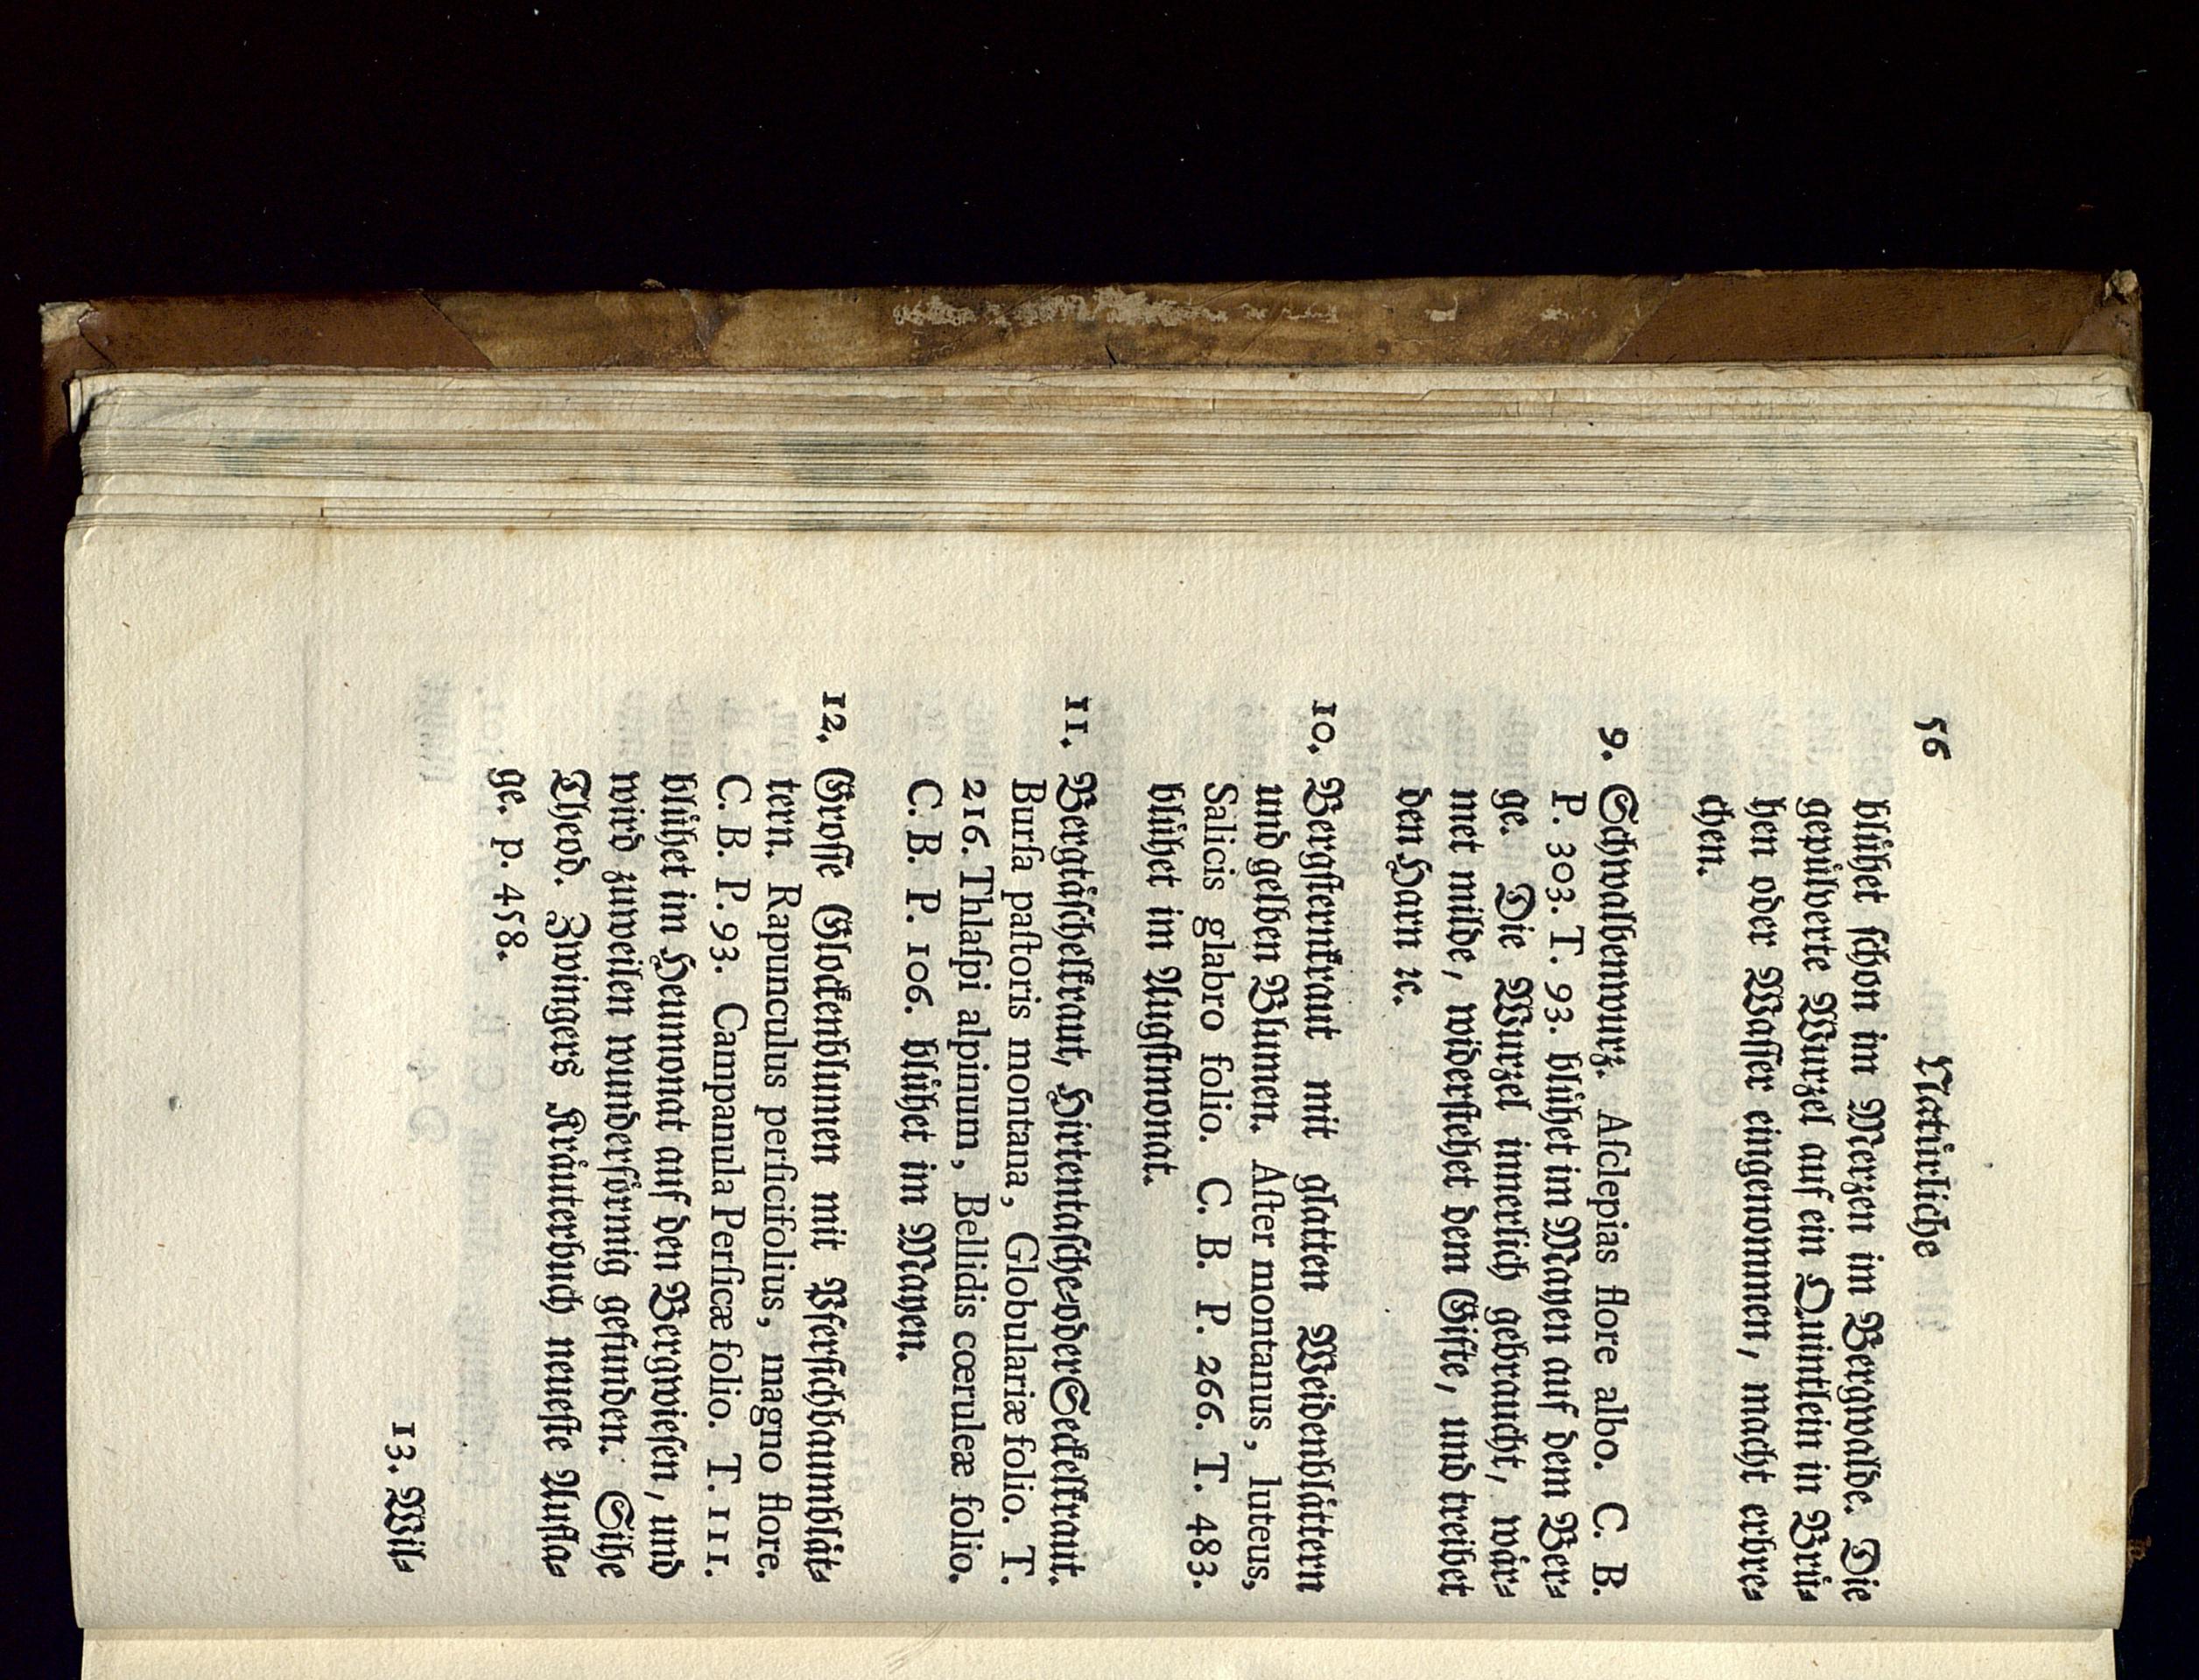 56 Natürliche
blühet schon im Merzen im Bergwalde. Die
gepülverte Wurzel auf ein Quintlein in Brü-
hen oder Wasser eingenommen, macht erbre-
chen.
9. Schwalbenwurz. Aſclepias flore albo. C. B.
P. 303. T. 93. blühet im Mayen auf dem Ber-
ge. Die Wurzel innerlich gebraucht, wär-
met milde, widerstehet dem Gifte, und treibet
den Harn ꝛc.
10. Bergsternkraut mit glatten Weidenblättern
und gelben Blumen. Aſter montanus, luteus,
Salicis glabro folio. C. B. P. 266. T. 483.
blühet im Augstmonat.
11. Bergtäschelkraut, Hirtentasche-oder Seckelkraut.
Burſa paſtoris montana, Globulariæ folio. T.
216. Thlaſpi alpinum, Bellidis cœruleæ folio.
C. B. P. 106. blühet im Mayen.
12. Grosse Glockenblumen mit Pfersichbaumblät-
tern. Rapunculus perſicifolius, magno flore.
C. B. P. 93. Campanula Perſicæ folio. T. 111.
blühet im Heumonat auf den Bergwiesen, und
wird zuweilen wunderförmig gefunden. Sihe
Theod. Zwingers Kräuterbuch neueste Aufla-
ge. p. 458.
13. Wil-